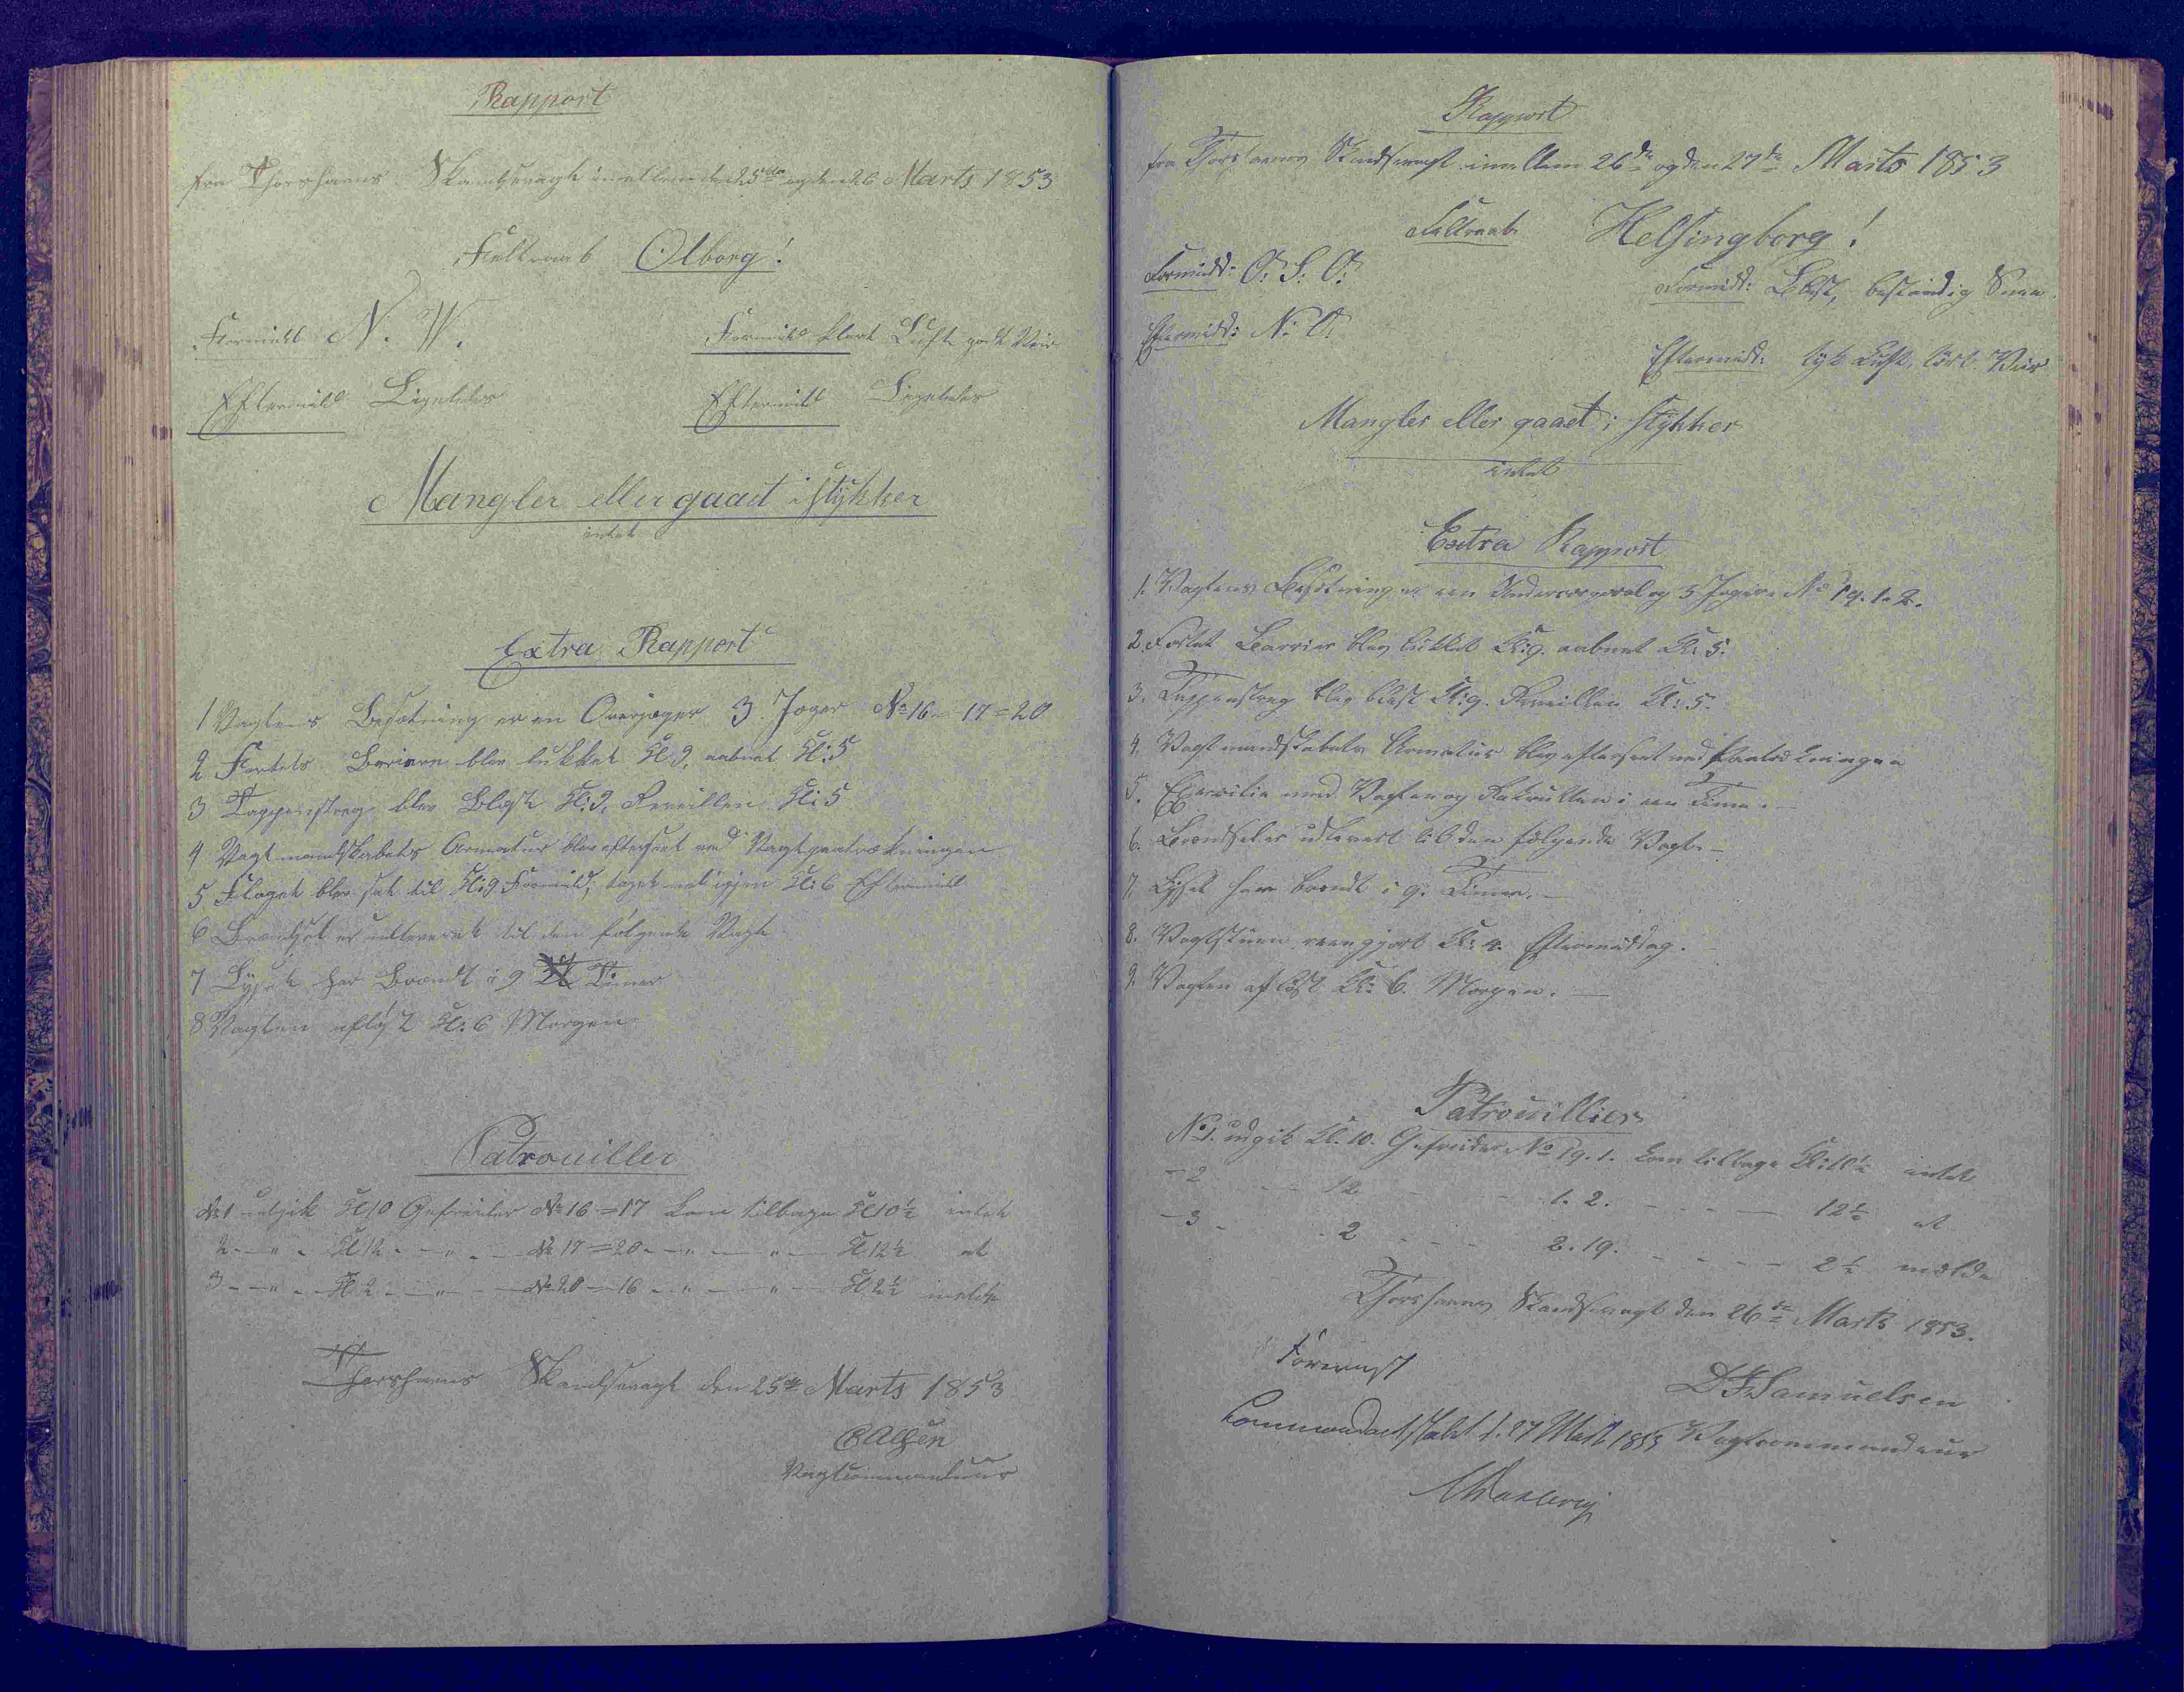 Rapport
fra Thorshavns Skandsevagt imellem den 25de og den 26 Marts 1853
Feltraab Olborg!
Formidd N. W.
Formidd klart Luft godt Veir
Eftermidd Ligeledes
Eftermidd Ligeledes
Mangler eller gaaet i stykker
intet
Extra Rapport
1 Vagtens Besætning er en Overjæger 3 Jæger No 16 - 17 = 20
2 Fortets Bariere blev lukket Kl: 9, aabnet Kl: 5
3 Tappenstreg blev Blæst Kl: 9, Reveillen Kl: 5
4 Vagtmandskabets Armatur blev efterseet ved Vagtparatrækningen
5 Flaget blev sat til Kl: 9 Formidd, taget ned igjen Kl: 6 Eftermidd
6 Brændsel er udleveret til den følgende Vagt
7 Lyset har Brændt i 9 Timer
8 Vagten afløst Kl: 6 Morgen
Patrouiller
No 1 udgik Kl 10 Gefreider No 16 = 17 kom tilbage Kl 10½ intet
2 - " - Kl 12 - " - No 17 = 20 - " - " - Kl 12½ at
3 - " - Kl 2 - " - No 20 = 16 - " - " - Kl 2½ melde
Thorshavns Skandsevagt den 25de Marts 1853
Vagtcommandeur
Rapport
fra Thorshavns Skandsevagt imellem 26de og den 27de Marts 1853
Feltraab Helsingborg!
Formidd: O: S: O:
Formidd: Blæst, bestandig Snee.
Eftermidd: N: O:
Eftermidd: tyk Luft, tørt Veir
Mangler eller gaaet i stykker
intet
Extra Rapport
1. Vagtens Besætning er een Undercorporal og 3 Jægere No 19. 1. 2.
2. Fortet Barrier blev lukket Kl: 9. aabnet Kl: 5.
3. Tappenstreg blev blæst Kl: 9. Reveillen Kl: 5.
4. Vagtmandskabets Armatur blev efterseet ved
5. Exercitie med Vagten og Rekrutten i een Time. -
6. Brændsel er udleveret til den følgende Vagt. -
7. Lyset har brændt i 9. Timer. -
8. Vagtstuen reengjort Kl: 4. Eftermiddag. -
9. Vagten afløst Kl: 6. Morgen. -
Patrouillier
No 1. udgik Kl. 10. Gefreider No 19. 1. kom tilbage Kl: 10½ intet
- 2 - - 12 - - 1. 2. - - - - 12½ at
- 3 - - 2 - - - 2. 19. - - - - 2½ melde
Thorshavns Skandsevagt den 26de Marts 1853.
Foreviist
D F Samuelsen
Commandantskabet d. 27 Marts 1853
Vagtcommandeur